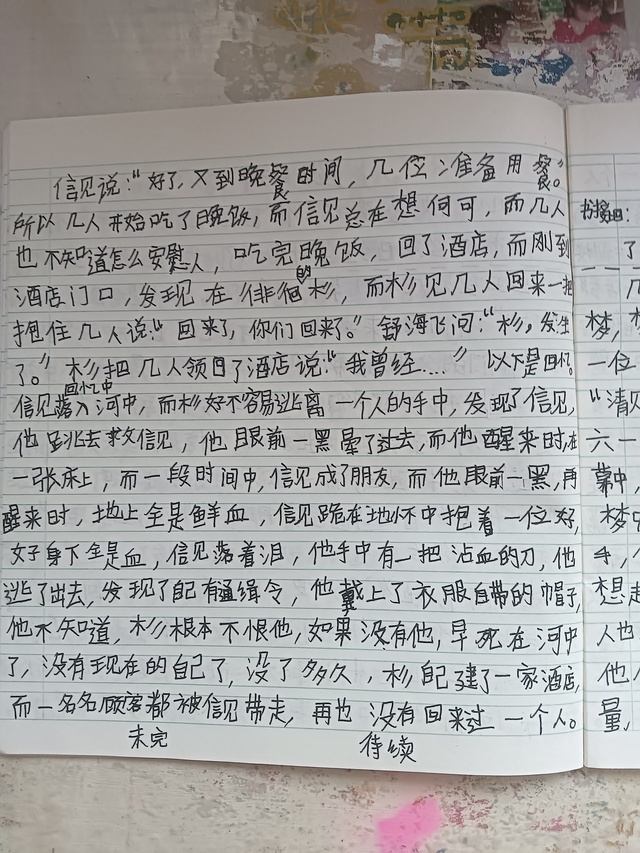 信见说:“好了,又到晚餐时间,几位准备用餐”。
所以几人开始吃了晚饭,而信见总在想何可,而几人
也不知道怎么安慰人,吃完晚饭,回了酒店,而刚到
酒店门口,发现在徘徊的杉,而杉见几人回来一把
抱住几人说:“回来了,你们回来了。”舒海飞问:“杉。发生
了。”杉把几人领回了酒店说:“我曾经....”以下是回忆。
回忆中
信见落入河中,而杉好不容易逃离一个人的手中,发现了信见,
他跳去救信见,他眼前一黑晕了过去,而他醒来时,在
一张床上,而一段时间中,信见成了朋友,而他眼前一黑,再
醒来时,地上全是鲜血,信见跪在地怀中抱着一位好,
女子身下全是血,信见落着泪,他手中有一把沾血的刀,他
逃了出去,发现了自己有通缉令,他戴上了衣服自带的帽子,
他不知道,杉根本不恨他,如果没有他,早死在河中
了,没有现在的自己了,没了多久,杉自己建了一家酒店,
而一名名顾客都被信见带走,再也没有回来过一个人。
未完 待续
书接上回:
了
几
梦,
一位
“清见
六一
幕中,
梦中
手,
想走
人也
他
量,